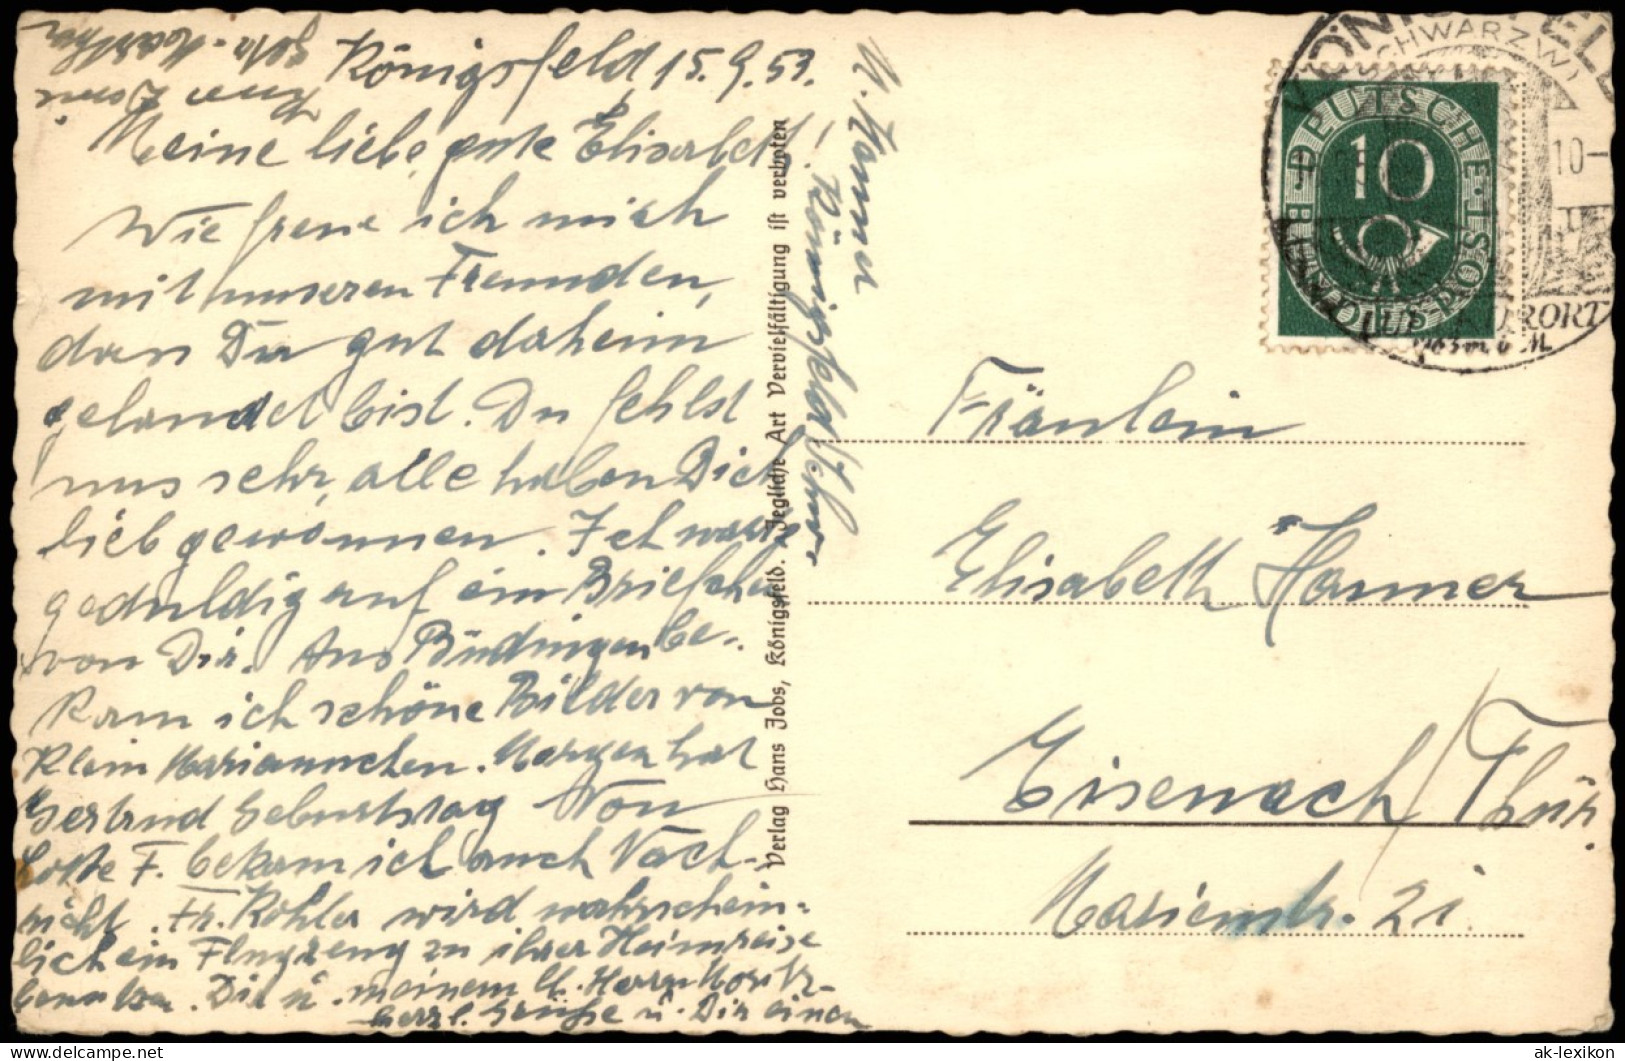 Königsfeld, 15. 9. 53.
Meine liebe, gute Elisabeth!
Wie freue ich mich
mit unseren Freunden,
dass Du gut daheim
gelandet bist. Du fehlst
uns sehr, alle haben Dich
lieb gewonnen. Ich warte
geduldig auf ein Briefchen
von Dir. Aus Büdingen be-
kam ich schöne Bilder von
Klein Mariannchen. Morgen hat
Gertrud Geburtstag Von
Lotte F. bekam ich auch Nach-
richt. Fr. Köhler wird wahrschein-
lich ein Flugzeug zu ihrer Heimreise
benutzen. Dir u. meinem lb. Herrn Moritz
herzl. Grüße u. Dir einen
Königsfeld
Verlag Hans Jobs, Königsfeld. Jegliche Art Vervielfältigung ist verboten
DEUTSCHE BUNDESPOST
10
KÖNIGSFELD
SCHWARZW
10-
KURORT
763 m ü M
Fräulein
Elisabeth Hanner
Eisenach / Thür.
Marienstr. 21
ak-lexikon